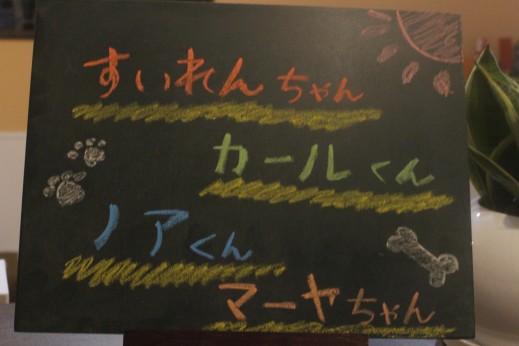 すいれんちゃん
カールくん
ノアくん
マーヤちゃん